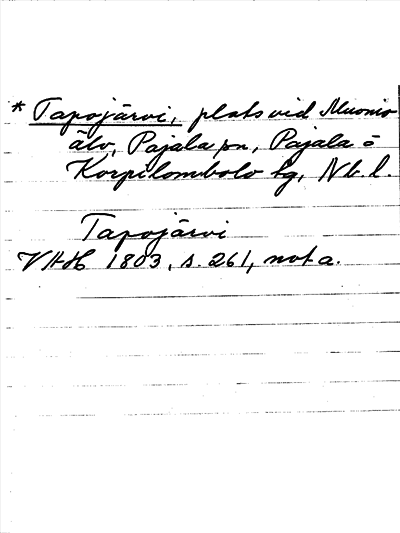 * Tapojärvi, plats vid Muonio
älv, Pajala sn, Pajala o
Korpilombolo tg, Nb. l.
Tapojärvi
VAH 1803, s. 261, not a.